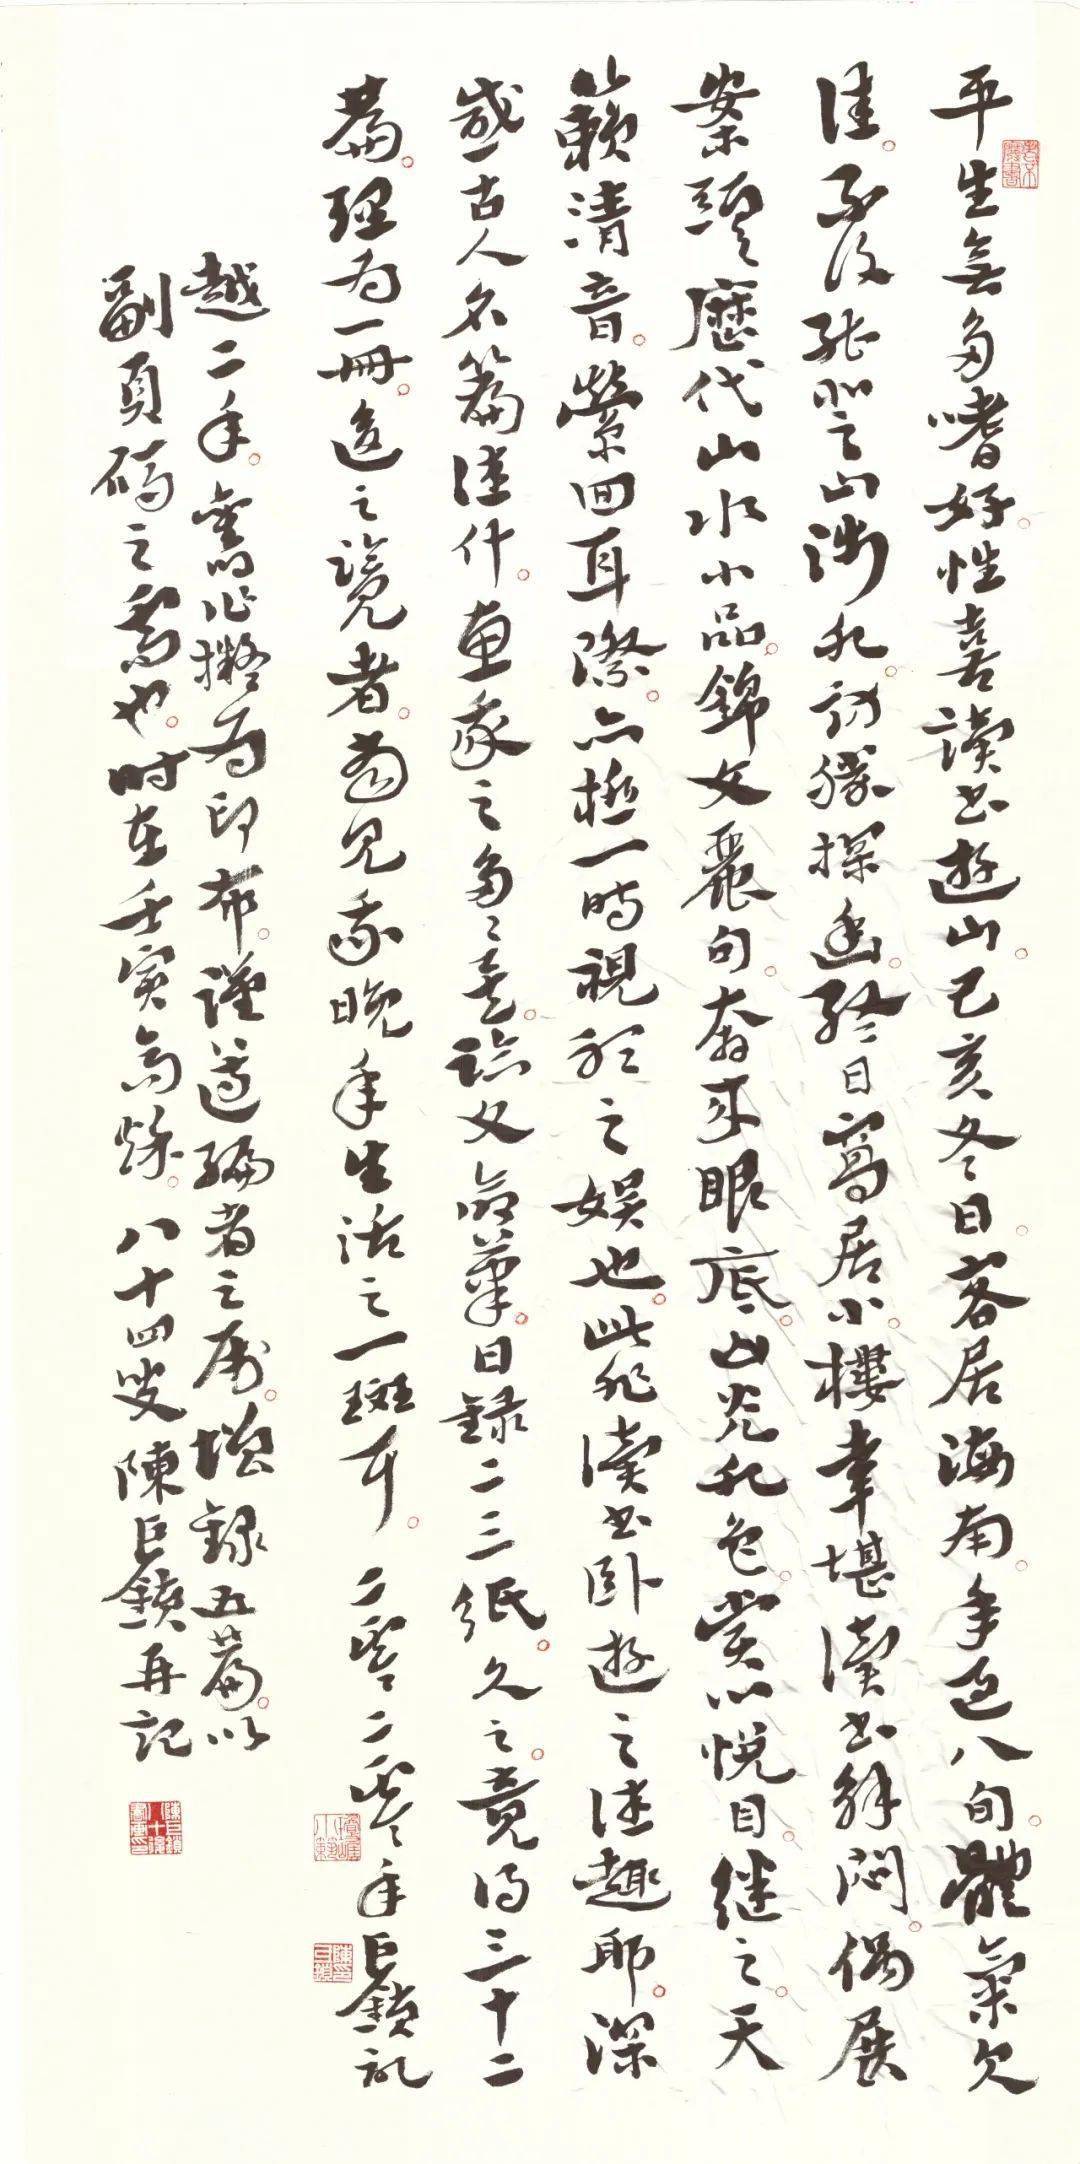 老不廢書
平生無多嗜好性喜讀書遊山己亥冬日客居海南年近八旬體氣欠
佳不復能登山涉水訪勝探幽終日寓居小樓幸堪讀書解悶偶展
案頭歷代山水小品錦文麗句奔來眼底山光水色賞心悅目繼之天
籟清音縈回耳際亦極一時視聽之娛也此非讀書臥遊之佳趣耶深
感古人名篇佳什惠我之多多矣臨文命筆日錄二三紙久之竟得三十二
篇理為一冊之覽者見我晚年生活之一斑耳二零二零年巨鎖記
越二年擬為印布謹遵編者之屬增錄五篇以
副頁碼之需也时在壬寅高秋八十四叟陳巨鎖再記